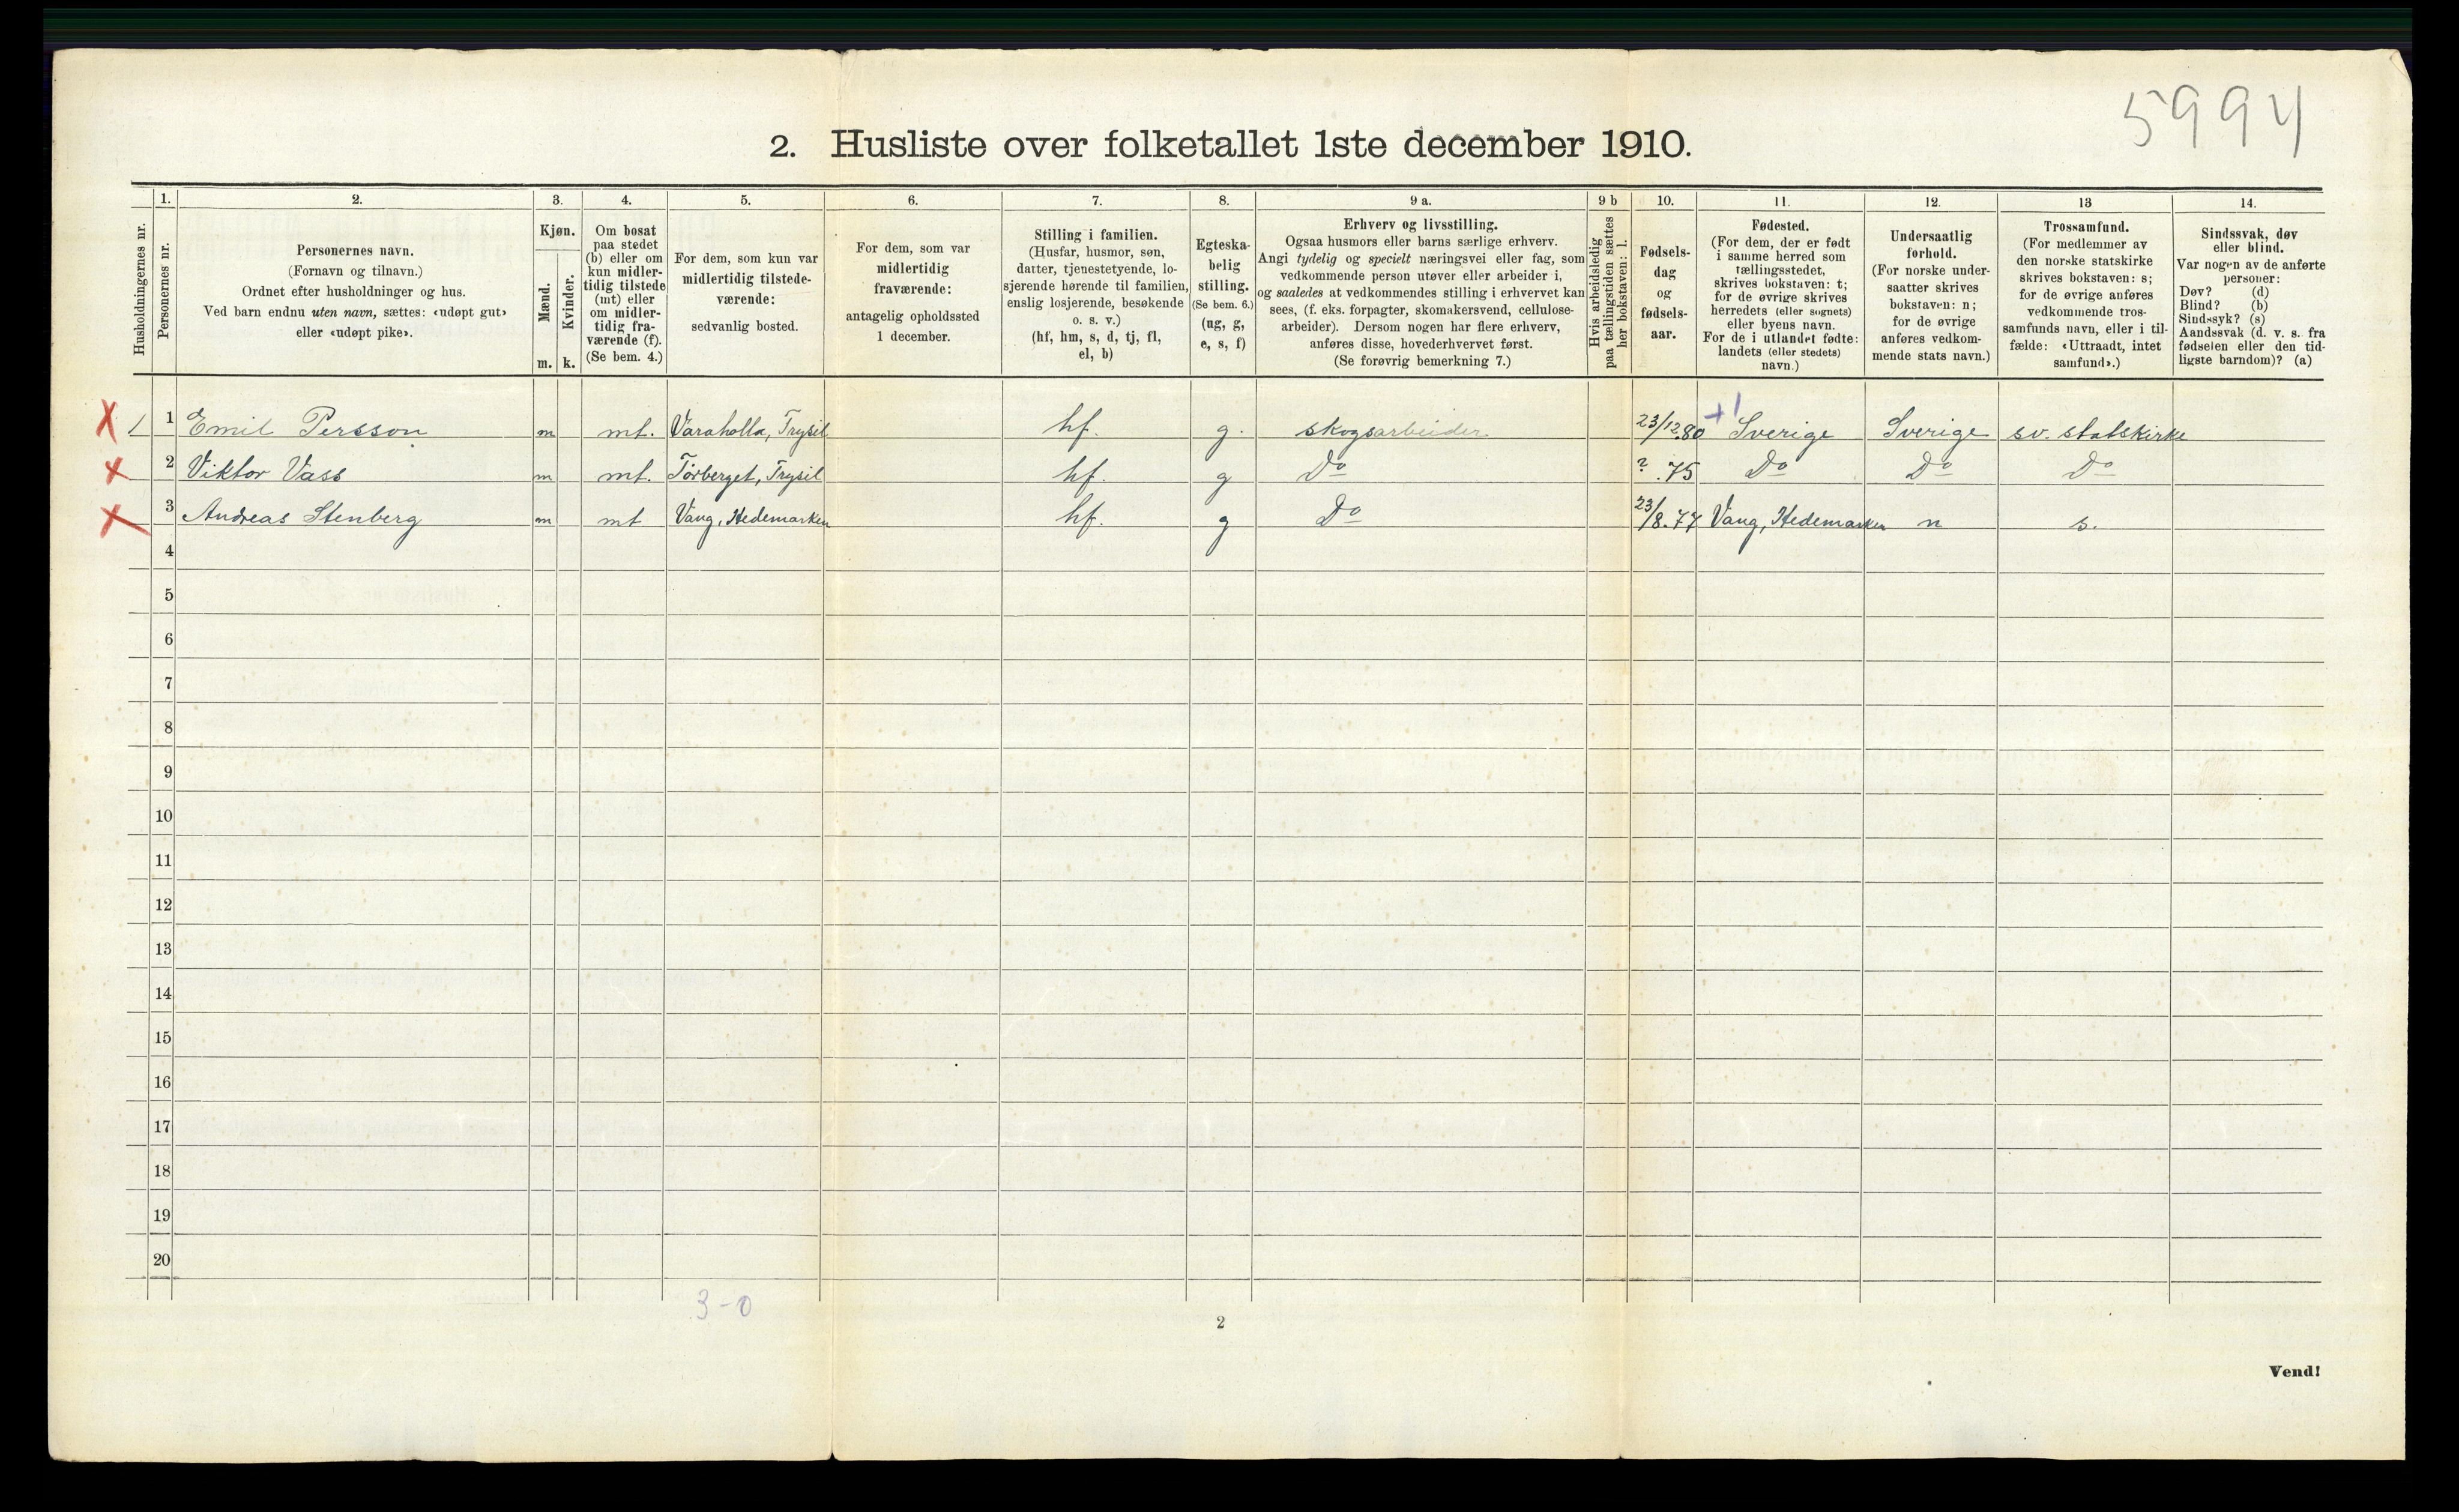 5994
2. Husliste over folketallet 1ste december 1910.
1. 2. 3. 4. 5. 6. 7. 8. 9 a. 9 b 10. 11. 12. 13 14.
Husholdningernes nr.
Personernes nr.
Personernes navn.
(Fornavn og tilnavn.)
Ordnet efter husholdninger og hus.
Ved barn endnu uten navn, sættes: «udøpt gut»
eller «udøpt pike».
Kjøn.
Mænd.
Kvinder.
m. k.
Om bosat
paa stedet
(b) eller om
kun midler-
tidig tilstede
(mt) eller
om midler-
tidig fra-
værende (f).
(Se bem. 4.)
For dem, som kun var
midlertidig tilstede-
værende:
sedvanlig bosted.
For dem, som var
midlertidig
fraværende:
antagelig opholdssted
1 december.
Stilling i familien.
(Husfar, husmor, søn,
datter, tjenestetyende, lo-
sjerende hørende til familien,
enslig losjerende, besøkende
o. s. v.)
(hf, hm, s, d, tj, fl,
el, b)
Egteska-
belig
stilling.
(Se bem. 6.)
(ug, g,
e, s, f)
Erhverv og livsstilling.
Ogsaa husmors eller barns særlige erhverv.
Angi tydelig og specielt næringsvei eller fag, som
vedkommende person utøver eller arbeider i,
og saaledes at vedkommendes stilling i erhvervet kan
sees, (f. eks. forpagter, skomakersvend, cellulose-
arbeider). Dersom nogen har flere erhverv,
anføres disse, hovederhvervet først.
(Se forøvrig bemerkning 7.)
Hvis arbeidsledig
paa tællingstiden sættes
her bokstaven: l.
Fødsels-
dag
og
fødsels-
aar.
Fødested.
(For dem, der er født
i samme herred som
tællingsstedet,
skrives bokstaven: t;
for de øvrige skrives
herredets (eller sognets)
eller byens navn.
For de i utlandet fødte:
landets (eller stedets)
navn.)
Undersaatlig
forhold.
(For norske under-
saatter skrives
bokstaven: n;
for de øvrige
anføres vedkom-
mende stats navn.)
Trossamfund.
(For medlemmer av
den norske statskirke
skrives bokstaven: s;
for de øvrige anføres
vedkommende tros-
samfunds navn, eller i til-
fælde: «Uttraadt, intet
samfund».)
Sindssvak, døv
eller blind.
Var nogen av de anførte
personer:
Døv? (d)
Blind? (b)
Sindssyk? (s)
Aandssvak (d. v. s. fra
fødselen eller den tid-
ligste barndom)? (a)
X 1 1 Emil Persson m mt. Varaholla, Trysil hf. g. skogsarbeider 23/12.80 +1 Sverige Sverige sv. statskirke
X 2 Viktor Vass m mt. Törberget, Trysil hf. g Do ? .75 Do Do Do
X 3 Andreas Stenberg m mt Vang, Hedemarken hf. g Do 23/8.77 Vang, Hedemarken n s.
4
5
6
7
8
9
10
11
12
13
14
15
16
17
18
19
20
3-0
2
Vend!